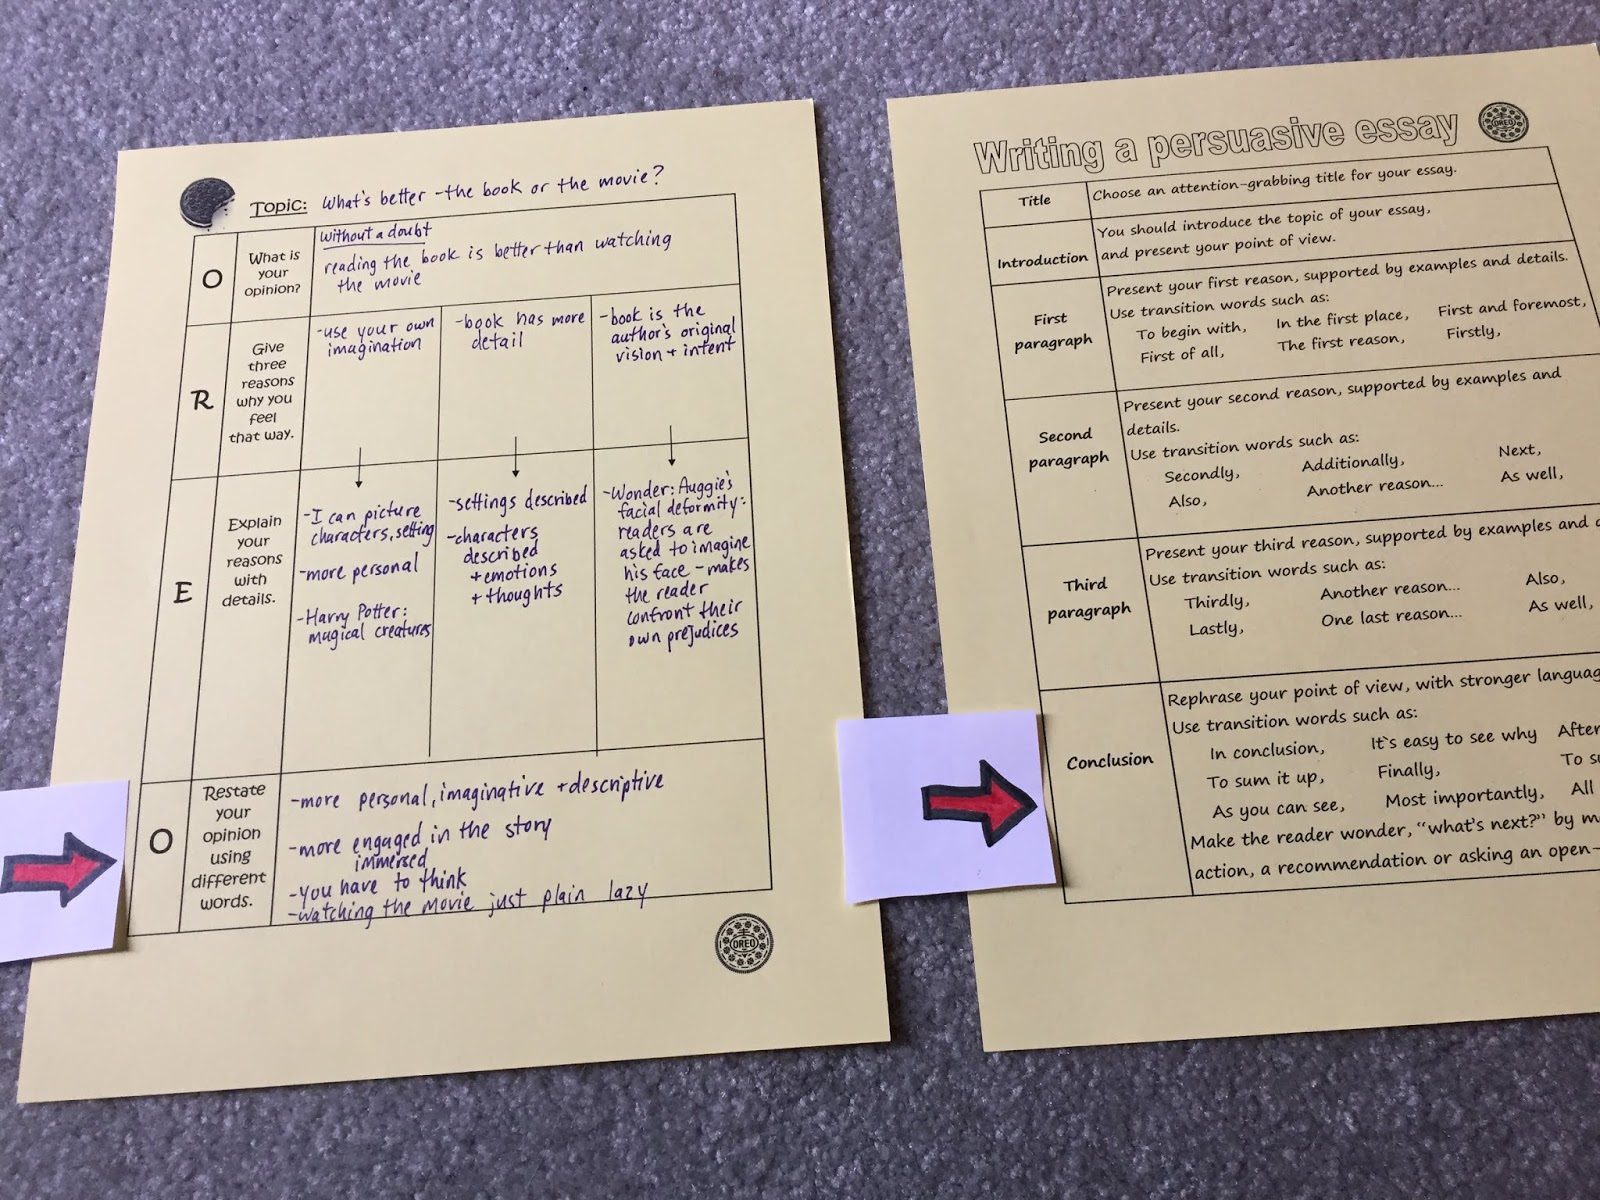 Topic: What's better - the book or the movie?
O
What is
your
opinion?
without a doubt
reading the book is better than watching
the movie
R
Give
three
reasons
why you
feel
that way.
-use your own
imagination
-book has more
detail
-book is the
author's original
vision + intent
E
Explain
your
reasons
with
details.
-I can picture
characters, setting
-more personal
-Harry Potter:
magical creatures
-settings described
-characters
described
+ emotions
+ thoughts
-Wonder: Auggie's
facial deformity:
readers are
asked to imagine
his face - makes
the reader
confront their
own prejudices
O
Restate
your
opinion
using
different
words.
-more personal, imaginative + descriptive
-more engaged in the story
immersed
-you have to think
-watching the movie just plain lazy
OREO
Writing a persuasive essay
OREO
Title
Choose an attention-grabbing title for your essay.
Introduction
You should introduce the topic of your essay,
and present your point of view.
First
paragraph
Present your first reason, supported by examples and details.
Use transition words such as:
To begin with, In the first place, First and foremost,
First of all, The first reason, Firstly,
Second
paragraph
Present your second reason, supported by examples and
details.
Use transition words such as:
Secondly, Additionally, Next,
Also, Another reason... As well,
Third
paragraph
Present your third reason, supported by examples and
Use transition words such as:
Thirdly, Another reason... Also,
Lastly, One last reason... As well,
Conclusion
Rephrase your point of view, with stronger languag
Use transition words such as:
In conclusion, It's easy to see why After
To sum it up, Finally, To su
As you can see, Most importantly, All
Make the reader wonder, "what's next?" by m
action, a recommendation or asking an open-